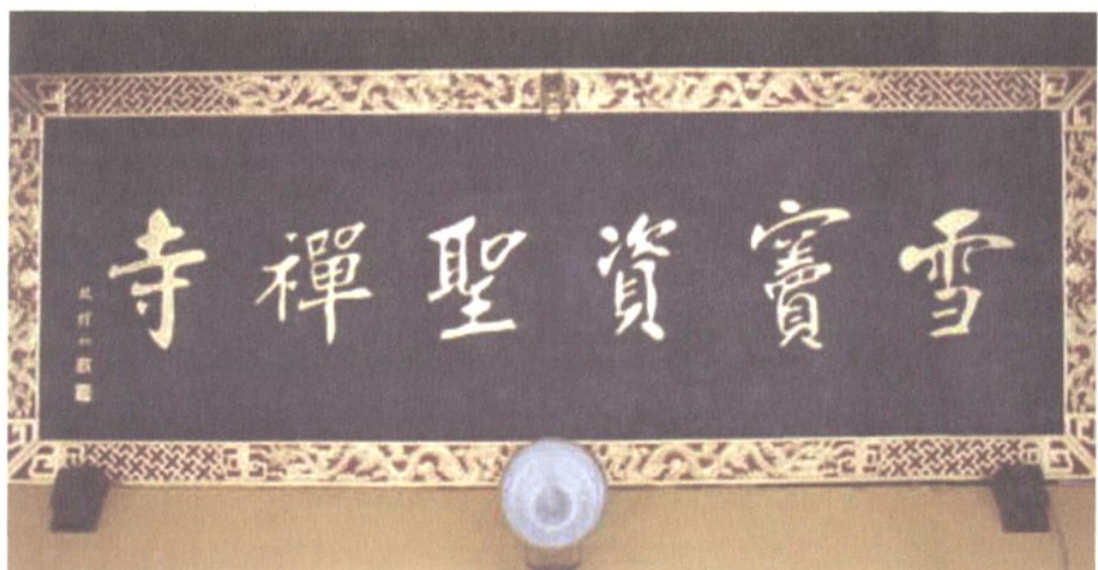 雪竇資聖禪寺